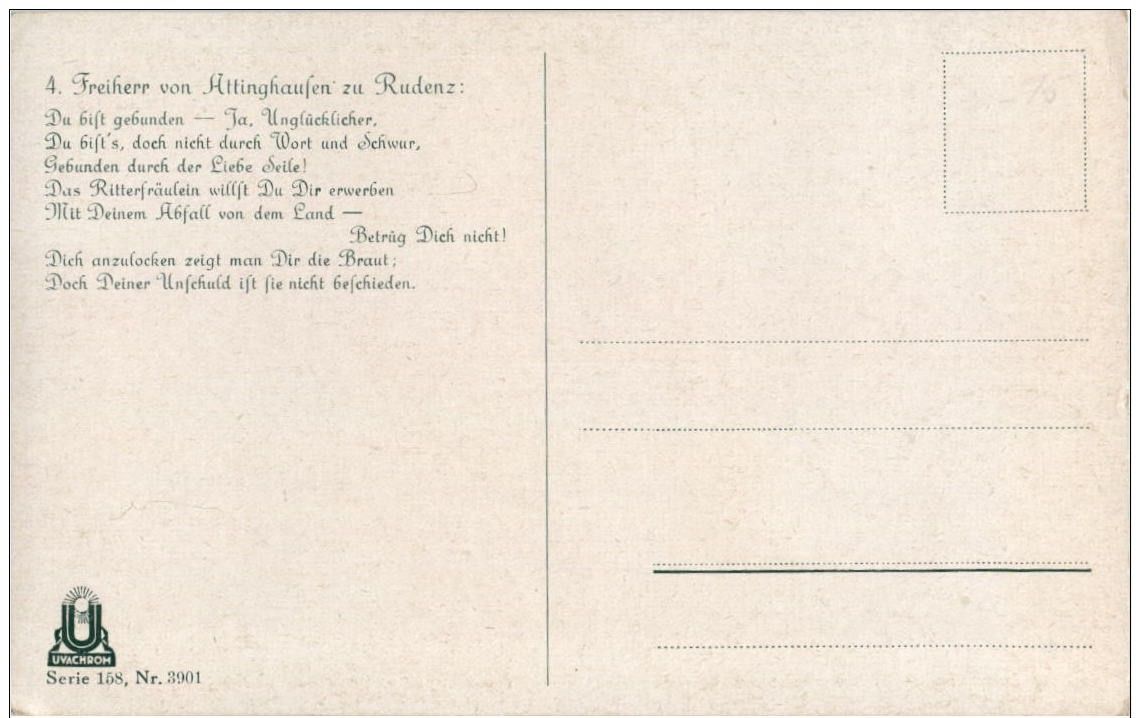 4. Freiherr von Attinghauſen zu Rudenz:
Du biſt gebunden — Ja, Unglücklicher,
Du biſt's, doch nicht durch Wort und Schwur,
Gebunden durch der Liebe Seile!
Das Ritterfräulein willſt Du Dir erwerben
Mit Deinem Abfall von dem Land —
Betrüg Dich nicht!
Dich anzulocken zeigt man Dir die Braut;
Doch Deiner Unſchuld iſt ſie nicht beſchieden.
UVACHROM
Serie 158, Nr. 3901